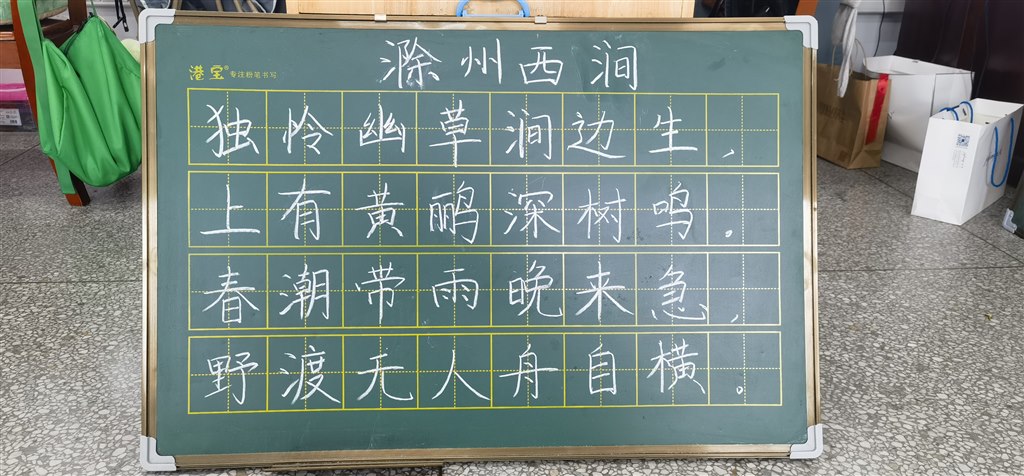 滁州西涧
港宝® 专注粉笔书写
独怜幽草涧边生，
上有黄鹂深树鸣。
春潮带雨晚来急，
野渡无人舟自横。